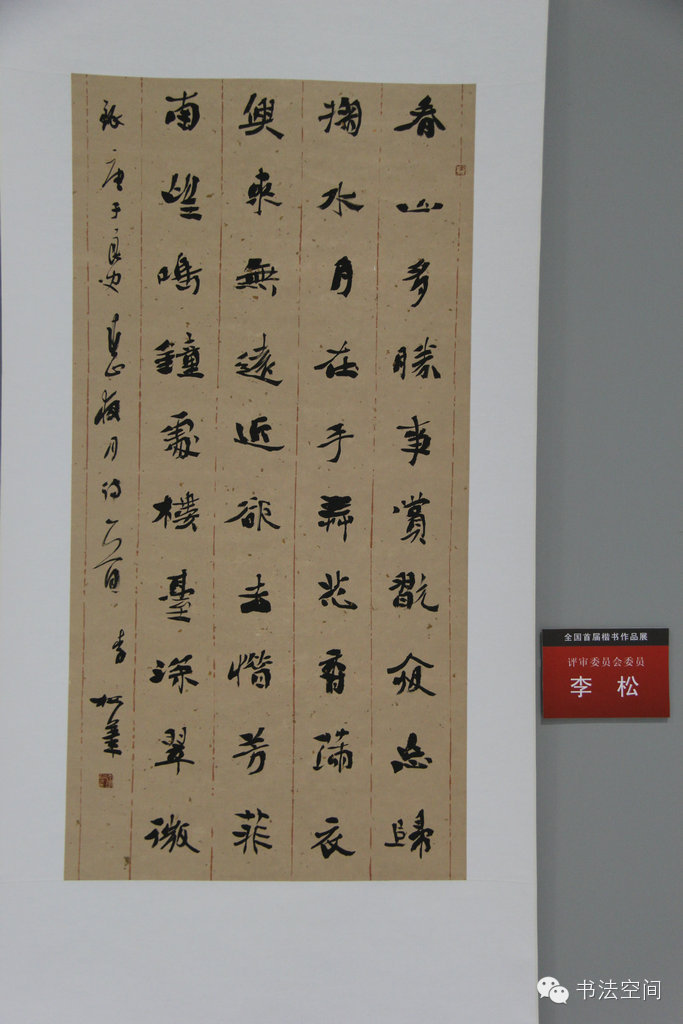 春山多勝事賞翫夜忘歸
掬水月在手弄花香滿衣
興來無遠近欲去惜芳菲
南望鳴鐘處樓臺深翠微
錄唐于良史春山夜月詩一首 李松書
全国首届楷书作品展
评审委员会委员
李 松
书法空间